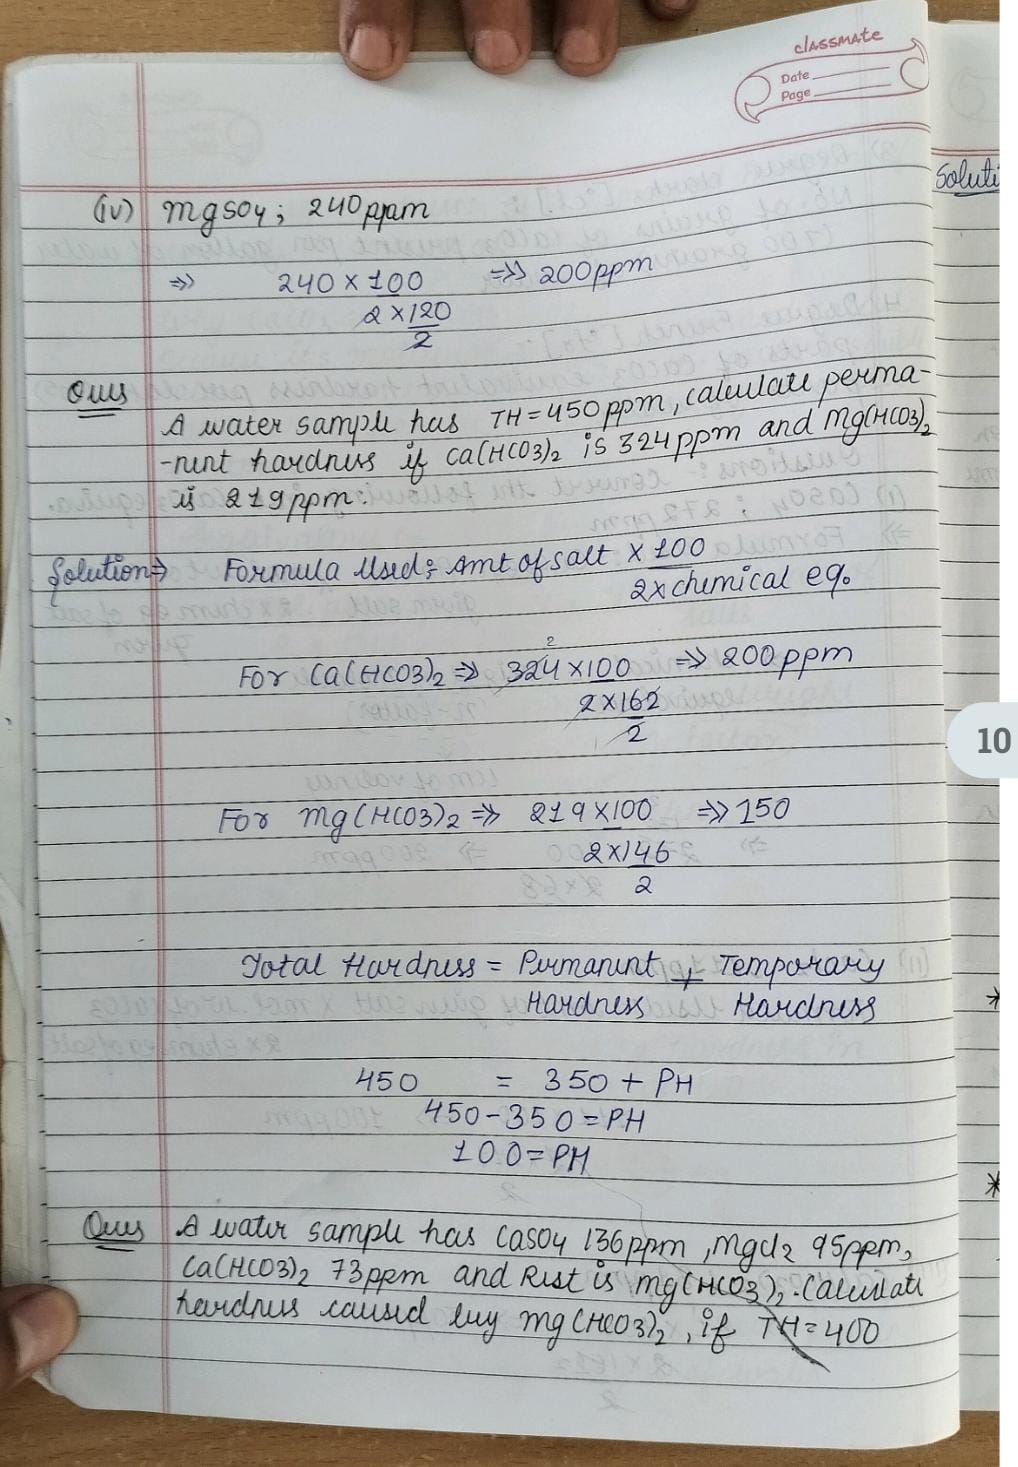 classmate
Date
Page
(iv) MgSO4; 240ppm
⇒ 240 × 100 ⇒ 200ppm
2 × 120
2
Ques
A water sample has TH = 450ppm, calculate perma-
-nent hardness if Ca(HCO3)2 is 324ppm and Mg(HCO3)2
is 219ppm:
Solution⇒ Formula Used: Amt of salt × 100
2 × chemical eq.
2
For Ca(HCO3)2 ⇒ 324 × 100 ⇒ 200ppm
2 × 162
2
For Mg(HCO3)2 ⇒ 219 × 100 ⇒ 150
2 × 146
2
Total Hardness = Permanent + Temporary
Hardness Hardness
450 = 350 + PH
450 - 350 = PH
100 = PH
Ques A water sample has CaSO4 136ppm, MgCl2 95ppm,
Ca(HCO3)2 73ppm and Rest is Mg(HCO3)2. Calculate
hardness caused by Mg(HCO3)2, if TH = 400
Soluti
10